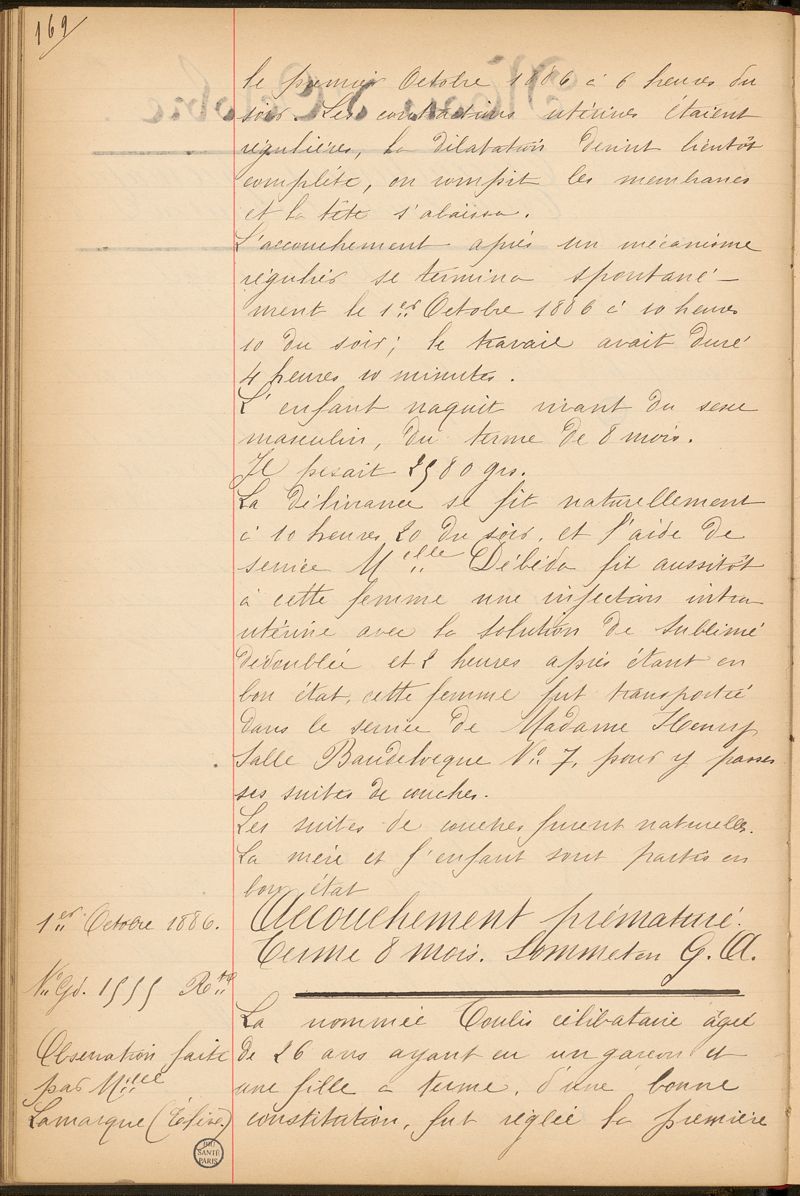 169
le premier Octobre 1886 à 6 heures du
soir. Les contractions utérines étaient
régulières, la dilatation devint bientôt
complète, on rompit les membranes
et la tête s'abaissa.
L'accouchement après un mécanisme
régulier se termina spontané-
ment le 1er Octobre 1886 à 10 heures
10 du soir; le travail avait duré
4 heures 10 minutes.
L'enfant naquit vivant du sexe
masculin, du terme de 8 mois.
Il pesait 2980 grs.
La délivrance se fit naturellement
à 10 heures 20 du soir, et l'aide de
service Melle Débéda fit aussitôt
à cette femme une injection intra
utérine avec la solution de sublimé
dédoublée et 2 heures après étant en
bon état, cette femme fut transportée
dans le service de Madame Henry
Salle Baudelocque No 7, pour y passer
ses suites de couches.
Les suites de couches furent naturelles.
La mère et l'enfant sont partis en
bon état
1er Octobre 1886.
Accouchement prématuré.
Terme 8 mois. Sommet en G. A.
No Gd. 1555 Rte
Observation faite
par Melle
Lamarque (Église)
La nommée Toulis célibataire âgée
de 26 ans ayant eu un garçon et
une fille à terme, d'une bonne
constitution, fut réglée la première
BIU
SANTÉ
PARIS